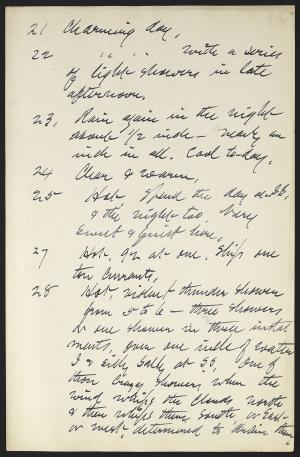 21 Charming day,
22 " " " with a series
of light showers in late
afternoon.
23, Rain again in the night
about 1/2 inch - nearly an
inch in all. Cool to-day.
24 Clear & warm,
25 Hot, Spend the day at S.S.
& the night too. Very
sweet & quiet here,
27 Hot, 92 at one. Ship one
ton currants,
28 Hot, violent thunder shower
from 5 to 6 - three showers
or one shower in three instal
ments, over one inch of water
I & Silly Sally at SS, One of
those crazy showers when the
wind whips the clouds north
& then whips them South or East
or west, determined to drain them.